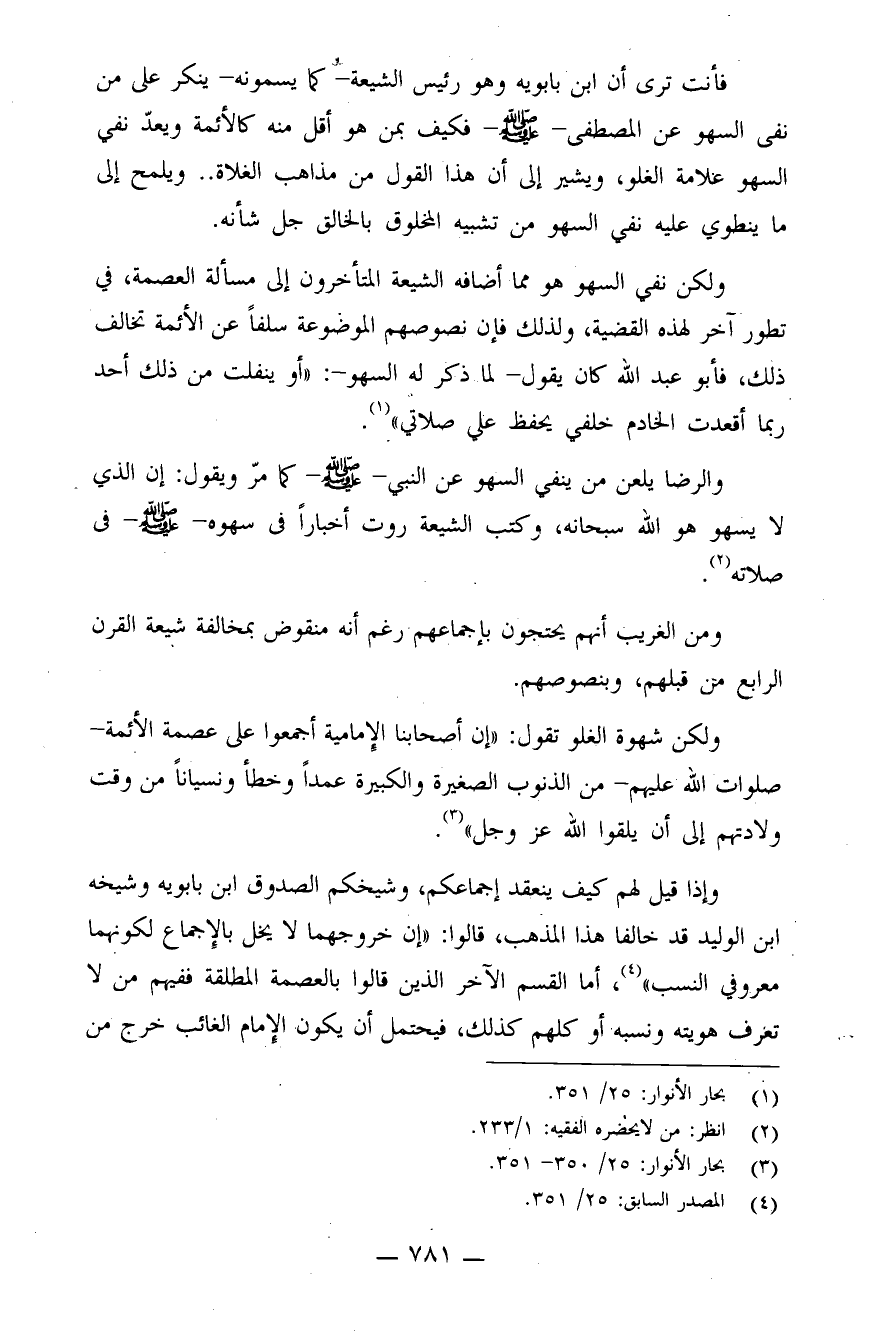 فأنت ترى أن ابن بابويه وهو رئيس الشيعة– كما يسمونه– ينكر على من
نفى السهو عن المصطفى– ﷺ– فكيف بمن هو أقل منه كالأئمة ويعدّ نفي
السهو علامة الغلو، ويشير إلى أن هذا القول من مذاهب الغلاة.. ويلمح إلى
ما ينطوي عليه نفي السهو من تشبيه المخلوق بالخالق جل شأنه.
ولكن نفي السهو هو مما أضافه الشيعة المتأخرون إلى مسألة العصمة، في
تطور آخر لهذه القضية، ولذلك فإن نصوصهم الموضوعة سلفاً عن الأئمة تخالف
ذلك، فأبو عبد الله كان يقول– لما ذكر له السهو–: «أو ينفلت من ذلك أحد
ربما أقعدت الخادم خلفي يحفظ علي صلاتي»(١).
والرضا يلعن من ينفي السهو عن النبي– ﷺ– كما مرّ ويقول: إن الذي
لا يسهو هو الله سبحانه، وكتب الشيعة روت أخباراً فى سهوه– ﷺ– فى
صلاته(٢).
ومن الغريب أنهم يحتجون بإجماعهم رغم أنه منقوض بمخالفة شيعة القرن
الرابع من قبلهم، وبنصوصهم.
ولكن شهوة الغلو تقول: «إن أصحابنا الإمامية أجمعوا على عصمة الأئمة–
صلوات الله عليهم– من الذنوب الصغيرة والكبيرة عمداً وخطأ ونسياناً من وقت
ولادتهم إلى أن يلقوا الله عز وجل»(٣).
وإذا قيل لهم كيف ينعقد إجماعكم، وشيخكم الصدوق ابن بابويه وشيخه
ابن الوليد قد خالفا هذا المذهب، قالوا: «إن خروجهما لا يخل بالإجماع لكونهما
معروفي النسب»(٤)، أما القسم الآخر الذين قالوا بالعصمة المطلقة ففيهم من لا
تعرف هويته ونسبه أو كلهم كذلك، فيحتمل أن يكون الإمام الغائب خرج من
(١) بحار الأنوار: ٢٥/ ٣٥١.
(٢) انظر: من لايحضره الفقيه: ٢٣٣/١.
(٣) بحار الأنوار: ٢٥/ ٣٥٠– ٣٥١.
(٤) المصدر السابق: ٢٥/ ٣٥١.
— ٧٨١ —